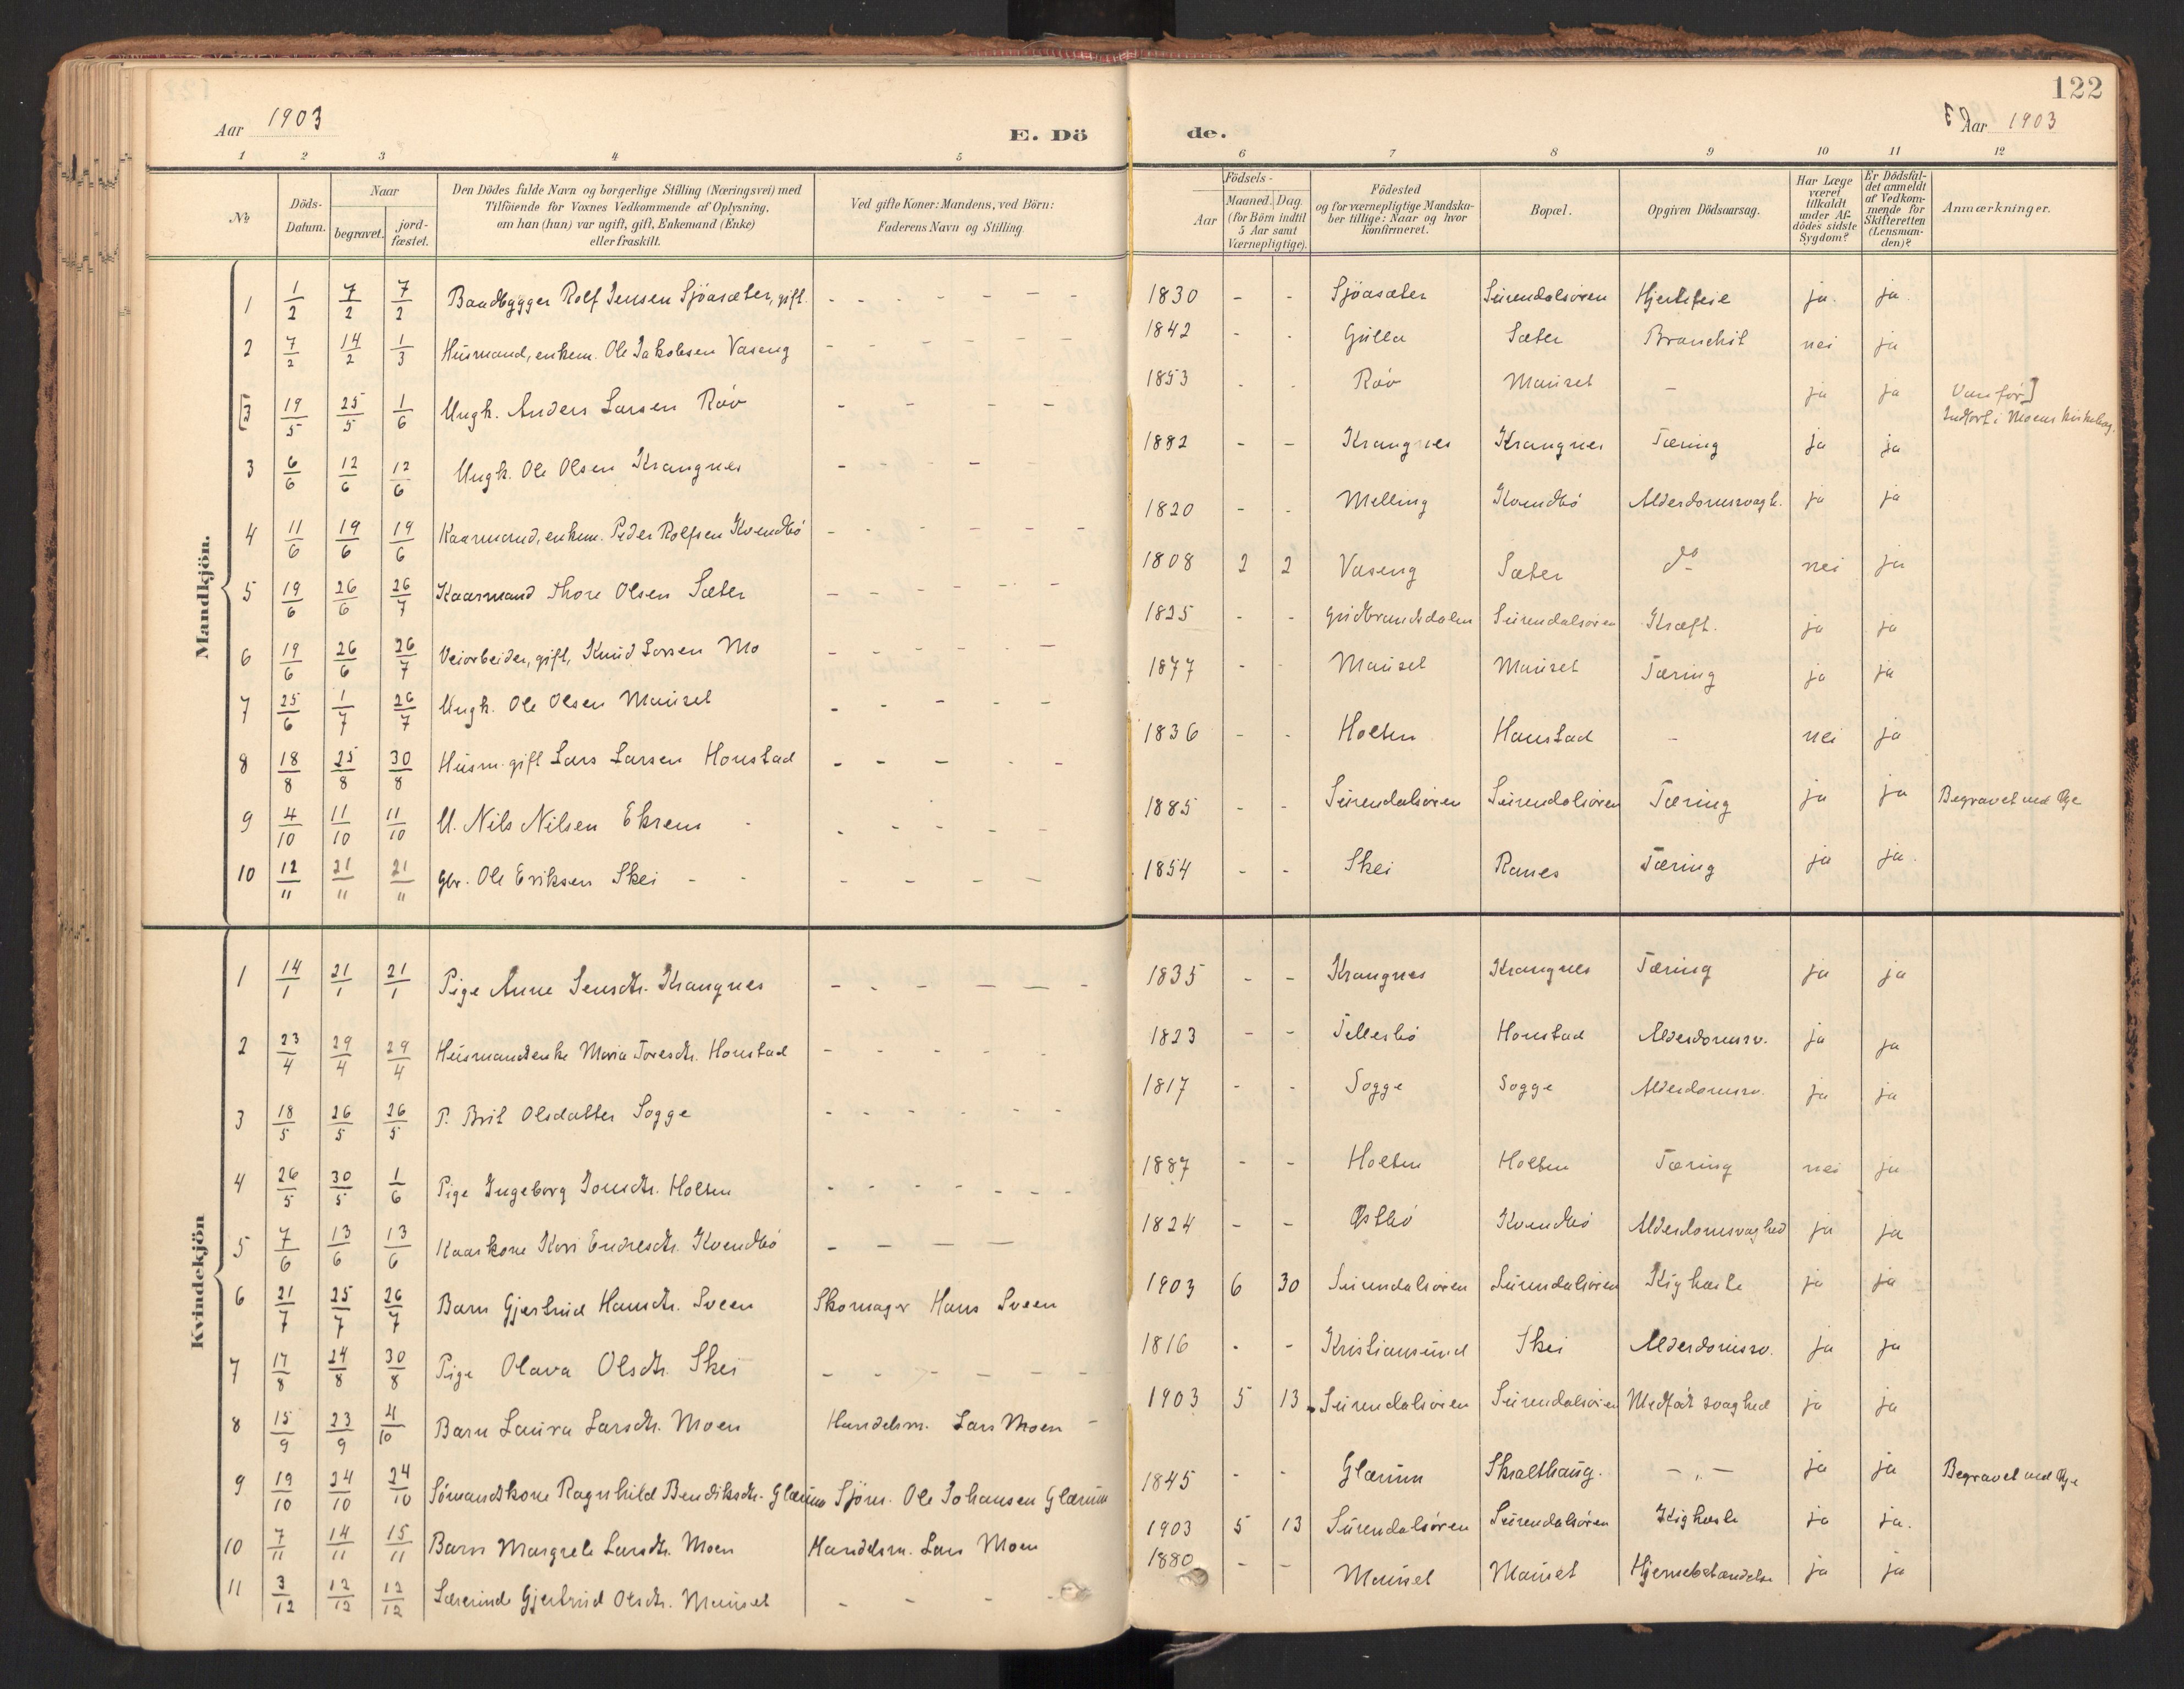 122
Aar 1903
E. Döde.
Aar 1903
1 2 3 4 5 6 7 8 9 10 11 12
No
Döds-Datum.
Naar
begravet.
jord-fæstet.
Den Dödes fulde Navn og borgerlige Stilling (Næringsvei) med
Tilföiende for Voxnes Vedkommende af Oplysning,
om han (hun) var ugift, gift, Enkemand (Enke)
eller fraskilt.
Ved gifte Koner: Mandens, ved Börn:
Faderens Navn og Stilling.
Födsels-
Aar
Maaned. Dag.
(for Börn indtil
5 Aar samt
Værnepligtige).
Födested
og for værnepligtige Mandska-
ber tillige: Naar og hvor
konfirmeret.
Bopæl.
Opgiven Dödsaarsag.
Har Læge
været
tilkaldt
under Af-
dödes sidste
Sygdom?
Er Dödsfal-
det anmeldt
af Vedkom-
mende for
Skifteretten
(Lensman-
den)?
Anmærkninger.
Mandkjön.
1 1/2 7/2 7/2 Baadbygger Rolf Jensen Sjöasæter, gift. - - - - - - - 1830 - - Sjöasæter Surendalsören Hjertefeil ja. ja.
2 7/2 14/2 1/3 Husmand, enkem. Ole Jakobsen Vaseng - - - - - - - 1842 - - Gulla Sæter Bronchit nei ja
[3 19/5 25/5 1/6 Ungk. Anders Larsen Röv - - - - 1853 - - Röv Mauset - ja ja Vanför]
Indfört i Moens kirkebog.
3 6/6 12/6 12/6 Ungk. Ole Olsen Krangnes - - - - - 1882 - - Krangnes Krangnes Tæring ja ja
4 11/6 19/6 19/6 Kaarmand, enkem. Peder Rolfsen Kvendbö - - - - - - - 1820 - - Melling Kvendbö Alderdomsvagh. ja ja
5 19/6 26/6 26/7 Kaarmand Thore Olsen Sæter - - - - - - 1808 2 2 Vaseng Sæter do nei ja
6 19/6 26/6 26/7 Veiarbeider, gift, Knud Larsen Mo - - - - - - 1825 - - Gudbrandsdalen Surendalsören Kræft. ja ja
7 25/6 1/7 26/7 Ungk. Ole Olsen Mauset - - - - - 1877 - - Mauset Mauset Tæring ja ja
8 18/8 25/8 30/8 Husm. gift Lars Larsen Honstad - - - - - 1836 - - Holten Honstad - nei ja
9 4/10 11/10 11/10 U. Nils Nilsen Ekrem - - - - - - 1885 - - Surendalsören Surendalsören Tæring ja ja Begravet ved Øye
10 12/11 21/11 21/11 Gbr. Ole Eriksen Skei - - - - - - 1854 - - Skei Ranes Tæring ja ja.
Kvindekjön
1 14/1 21/1 21/1 Pige Anne Jensdtr. Krangnes - - - - - - 1835 - - Krangnes Krangnes Tæring ja ja
2 23/4 29/4 29/4 Husmandsenke Maria Toresdtr. Honstad - - - - - 1823 - - Tellesbö Honstad Alderdomsv. ja ja
3 18/5 26/5 26/5 P. Brit Olsdatter Sogge - - - - - - 1817 - - Sogge Sogge Alderdomsv. ja ja
4 26/5 30/5 1/6 Pige Ingeborg Jonsdtr. Holten - - - - - - - 1887 - - Holten Holten Tæring nei ja
5 7/6 13/6 13/6 Kaarkone Kari Endresdtr. Kvendbö - - - - 1824 - - Östbö Kvendbö Alderdomsvaghed ja ja
6 21/7 25/7 26/7 Barn Gjertrud Hansdtr. Sveen Skomager Hans Sveen 1903 6 30 Surendalsören Surendalsören Kighoste ja ja
7 17/8 24/8 30/8 Pige Olava Olsdtr. Skei - - - - - - - 1816 - - Kristiansund Skei Alderdomsv. ja ja
8 15/9 23/9 4/10 Barn Laura Larsdtr. Moen Handelsm. Lars Moen - 1903 5 13 Surendalsören Surendalsören Medfödt svaghed ja ja
9 19/10 24/10 24/10 Sömandskone Ragnhild Bendiksdtr. Glærum Sjöm. Ole Johansen Glærum 1845 - - Glærum Skralthaug. - „ - ja ja Begravet ved Øye
10 7/11 14/11 15/11 Barn Margrete Larsdtr. Moen Handelsm. Lars Moen 1903 5 13 Surendalsören Surendalsören Kighoste ja ja.
11 3/12 12/12 12/12 Lærerinde Gjertrud Olsdtr. Mauset - - - - 1880 - - Mauset Mauset Hjernebetændelse ja ja